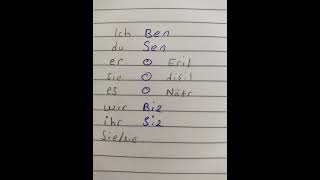 Ich Ben
du Sen
er O Eril
sie O disil
es O Nötr
wir Biz
ihr Siz
Sie/sie